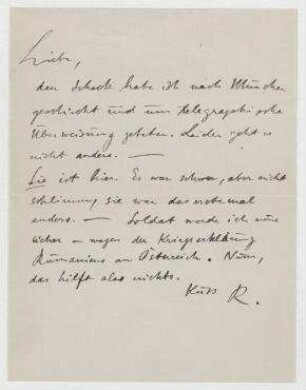 Liebe,
den Scheck habe ich nach München
geschickt und um telegraphische
Überweisung gebeten. Leider geht es
nicht anders. —
Sie ist hier. Es war schwer, aber nicht
schlimm, sie war das erstemal
anders. — Soldat werde ich nun
sicher wegen der Kriegserklärung
Rumäniens an Österreich. Nun,
das hilft also nichts.
Kuss R.